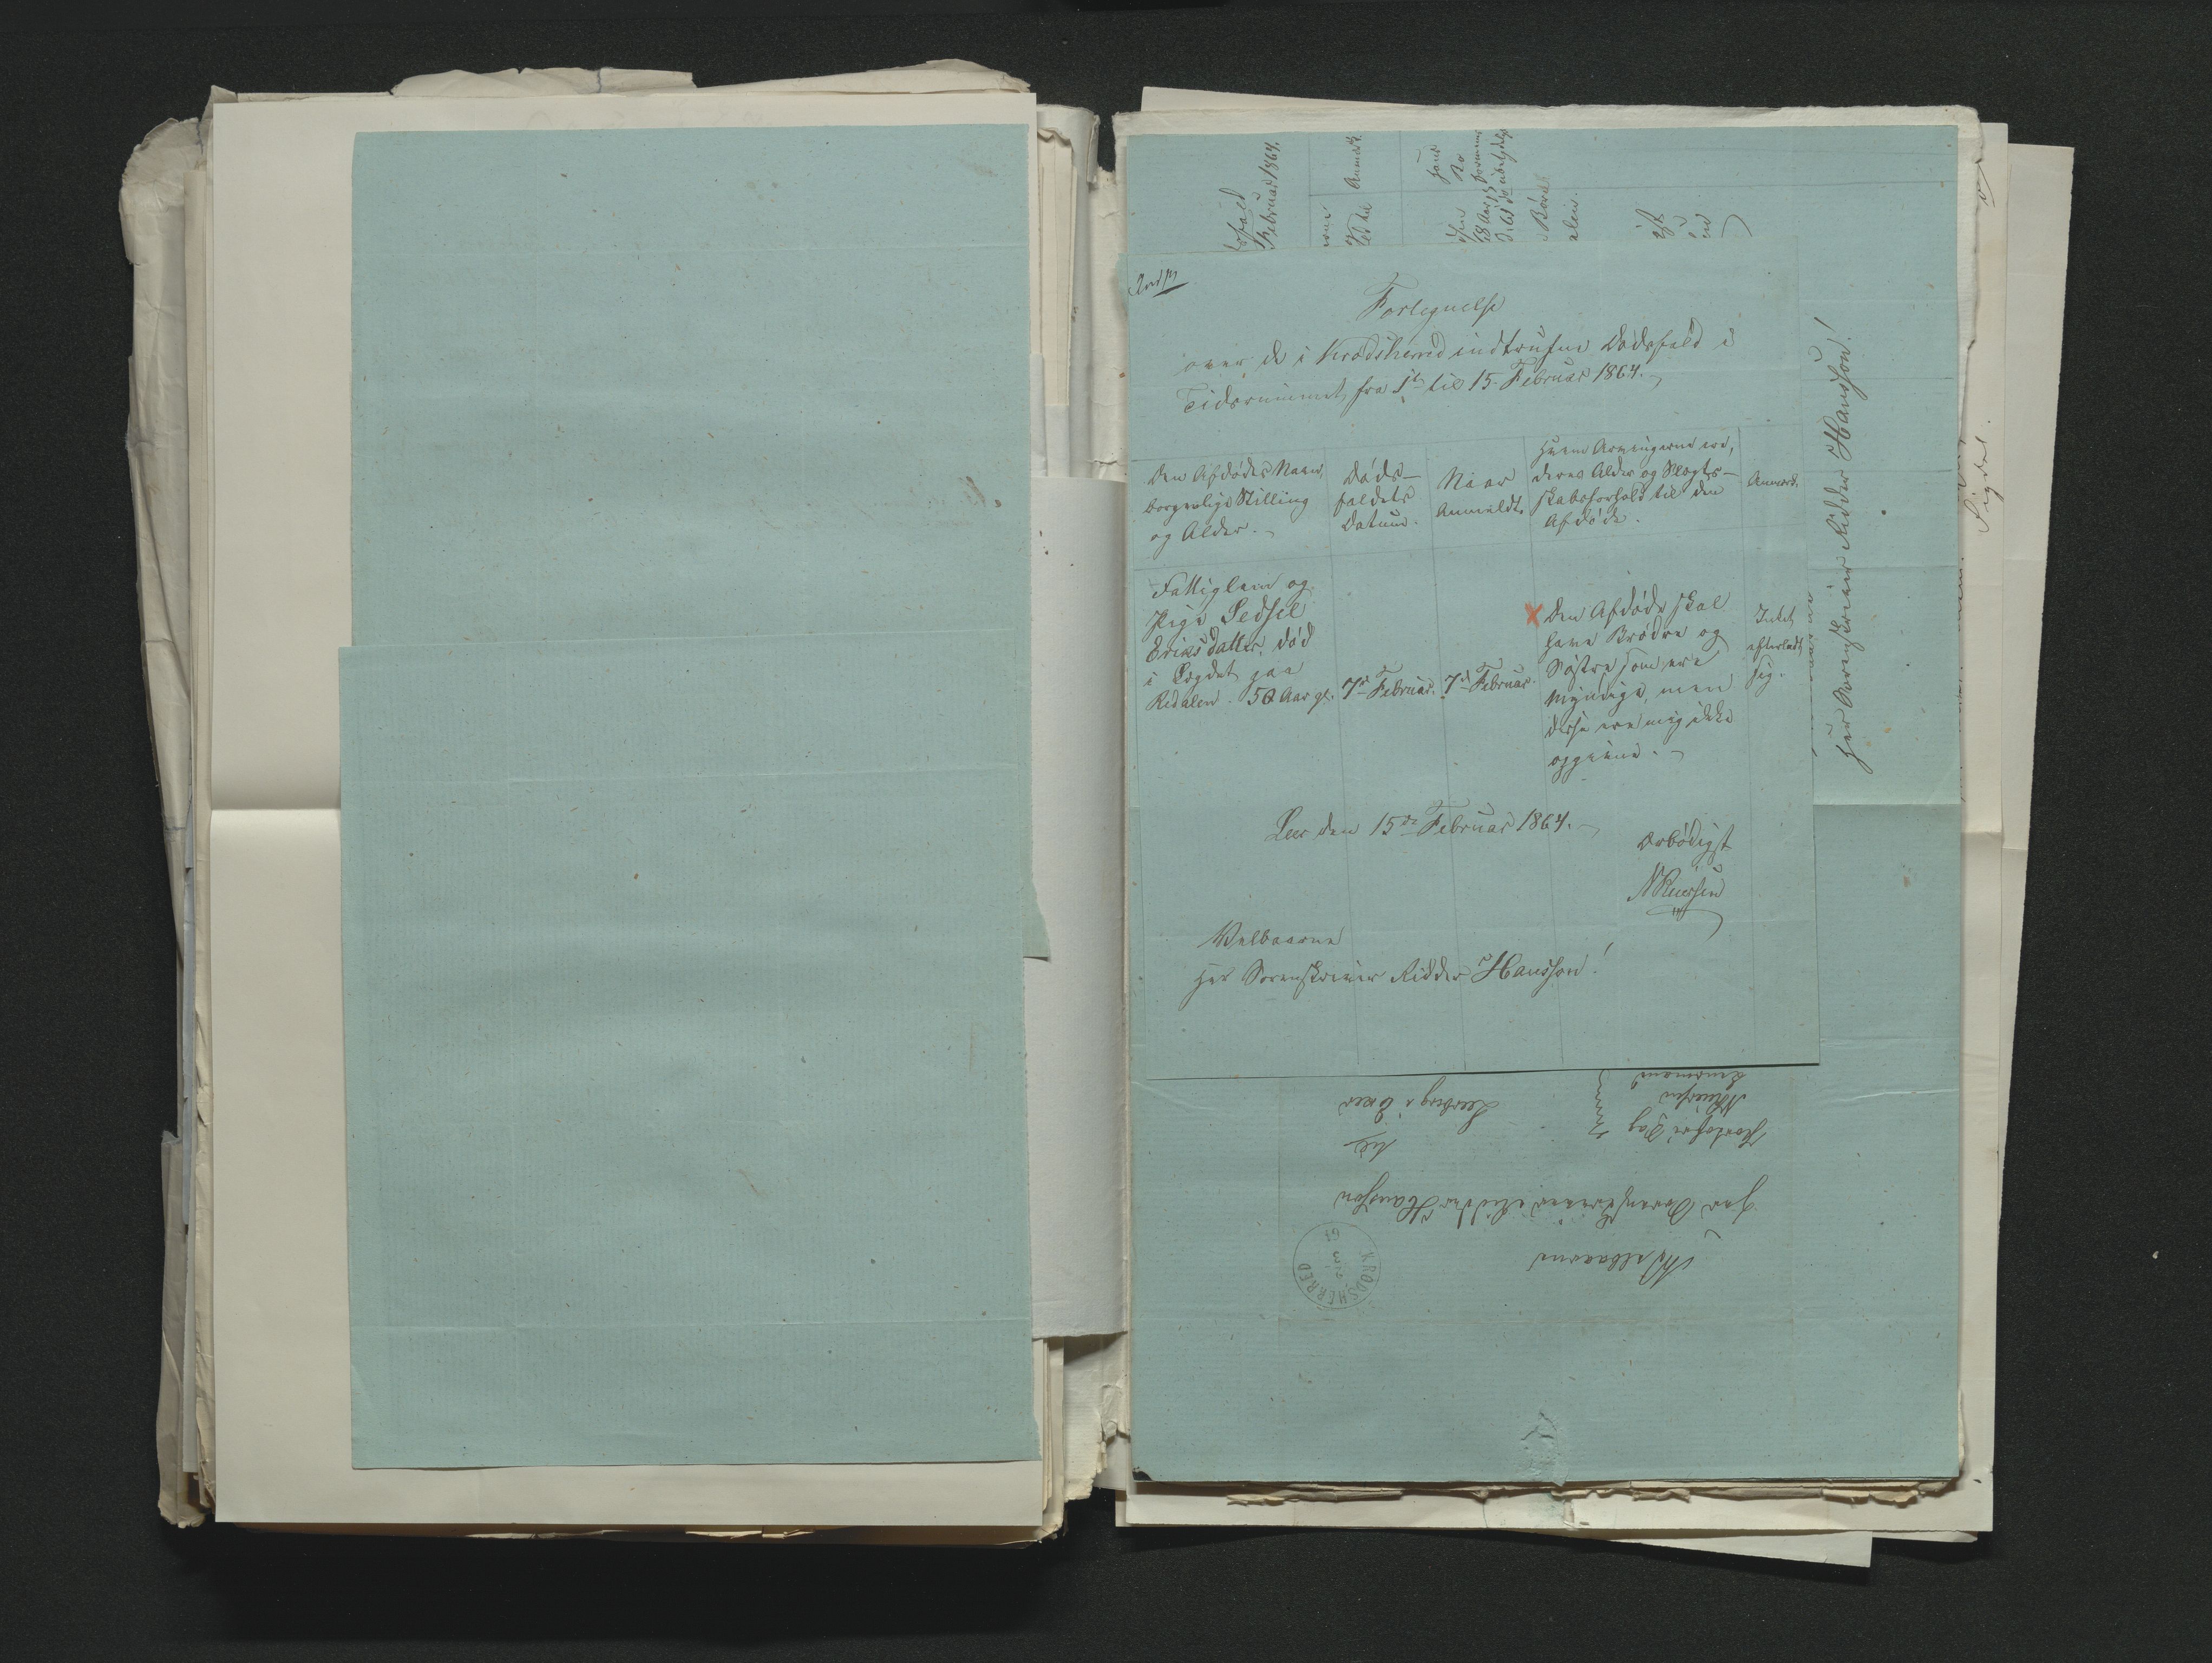 Fortegnelse
over de i Krødsherred indtrufne Dødsfald i
Tidsrummet fra 1ste til 15. Februar 1864.
Den Afdødes Navn,
borgerlige Stilling
og Alder.
Døds-
faldets
Datum.
Naar
Anmeldt.
Hvem Arvingerne ere,
deres Alder og Slægts-
skabsforhold til den
Afdøde.
Anmærk.
Fattiglem og
Pige Sedsel
Eriksdatter, død
i Lægdet paa
Redalen. 50 Aar gl.
7de Februar.
7de Februar.
Den Afdøde skal
have Brødre og
Søstre som ere
Myndige, men
disse ere mig ikke
opgivne.
Intet
efterladt
sig.
Leer den 15de Februar 1864.
Ærbødigst
Velbaarne
Herr Sorenskriver Ridder Hansson!
Februar 1864.
Anmærk.
Herr Sorenskriver Ridder Hansson!
Sigdal.
Velbaarne
Herr Sorenskriver Ridder Hansson
til
i Eker
KRØDSHERRED
Lensmand